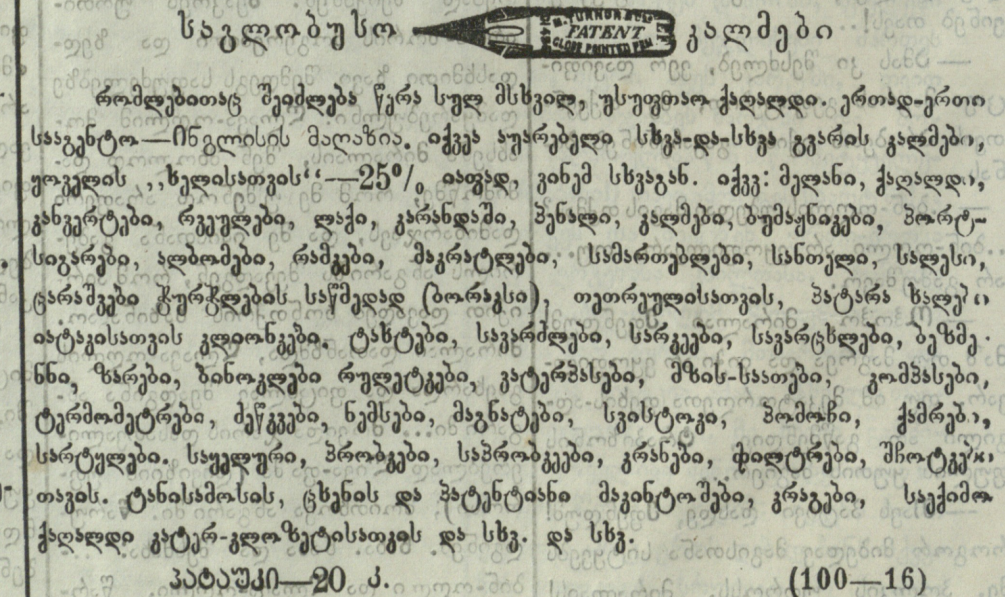 საგლობუსო M. TURNOR & Co's PATENT GLOBE POINTED PEN კალმები
რომლებითაც შეიძლება წერა სულ მსხვილ, უსუფთაო ქაღალდი. ერთად-ერთი
სააგენტო—ინგლისის მაღაზია. იქვეა აუარებელი სხვა-და-სხვა გვარის კალმები,
ყოველის ,,ხელისათვის“—25% იაფად, ვინემ სხვაგან. იქვე: მელანი, ქაღალდი,
კანვერტები, რვეულები, ლაქი, კარანდაში, პენალი, კალმები, ბუმაჟნიკები, პორტ-
სიგარები, ალბომები, რამკები, მაკრატლები, სამართებლები, სანთელი, სალესი,
ცარაშკები ჭურჭლების საწმედად (ბორაკსი), თეთრეულისათვის, პატარა ხალები
იატაკისათვის კლიონკები, ტახტები, სავარძლები, სარკეები, სავარცხლები, ბეზმე-
ნნი, ზარები, ბინოკლები რულეტკები, კატერპასები, მზის-საათები, კომპასები,
ტერმომეტრები, მეწკვები, ნემსები, მაგნატები, სვისტოკი, პომოჩი, ქამრები,
სარტულები. საყელური, პრობკები, საპრობკეები, კრანები, ფილტრები, შჩოტკები
თავის. ტანისამოსის, ცხენის და პატენტიანი მაკინტოშები, კრაგები, საექიმო
ქაღალდი ვატერ-კლოზეტისათვის და სხვ. და სხვ.
პატაუკი—20 კ. (100—16)